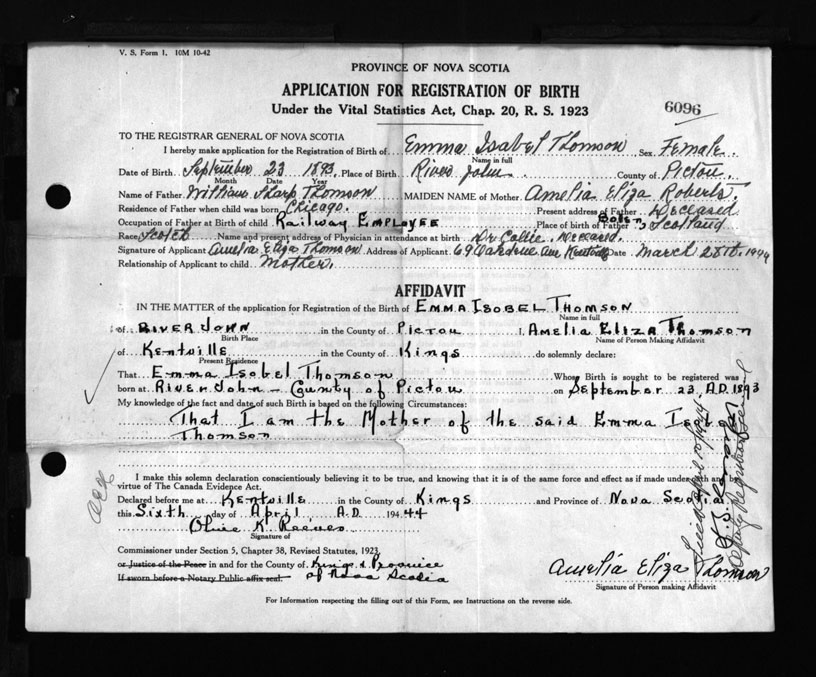 V. S. Form 1. 10M 10-42
PROVINCE OF NOVA SCOTIA
APPLICATION FOR REGISTRATION OF BIRTH
Under the Vital Statistics Act, Chap. 20, R. S. 1923
6096
TO THE REGISTRAR GENERAL OF NOVA SCOTIA
I hereby make application for the Registration of Birth of Emma Isabel Thomson Sex Female
Name in full
Date of Birth September 23 1893, Place of Birth River John County of Pictou.
Month Date Year
Name of Father William Tharp Thomson MAIDEN NAME of Mother Amelia Eliza Roberts.
Residence of Father when child was born Chicago. Present address of Father Deceased
Occupation of Father at Birth of Child Railway Employee Place of birth of Father Born Scotland
Race Scotch Name and present address of Physician in attendance at birth Dr Collie. Deceased.
Signature of Applicant Amelia Eliza Thomson Address of Applicant 69 Oakdene Ave Kentville Date March 28th. 1944
Relationship of Applicant to child Mother.
AFFIDAVIT
IN THE MATTER of the application for Registration of the Birth of Emma Isobel Thomson
Name in full
of River John in the County of Pictou I, Amelia Eliza Thomson
Birth Place Name of Person Making Affidavit
of Kentville in the County of Kings do solemnly declare:
Present Residence
That Emma Isabel Thomson Whose Birth is sought to be registered was
born at River John - County of Pictou on September 23, A.D. 1893
My knowledge of the fact and date of such Birth is based on the following Circumstances:
That I am the Mother of the said Emma Isabel
Thomson
I make this solemn declaration conscientiously believing it to be true, and knowing that it is of the same force and effect as if made under oath and
virtue of The Canada Evidence Act.
Declared before me at Kentville in the County of Kings and Province of Nova Scotia
this Sixth day of April A.D. 194 44
Olive K. Reeves
Signature of
Commissioner under Section 5, Chapter 38, Revised Statutes, 1923,
or Justice of the Peace in and for the County of Kings & Province
If sworn before a Notary Public affix seal. of Nova Scotia
Amelia Eliza Thomson
Signature of Person making Affidavit
For Information respecting the filling out of this Form, see Instructions on the reverse side.
Filed April 10/1944
Deputy Registrar General